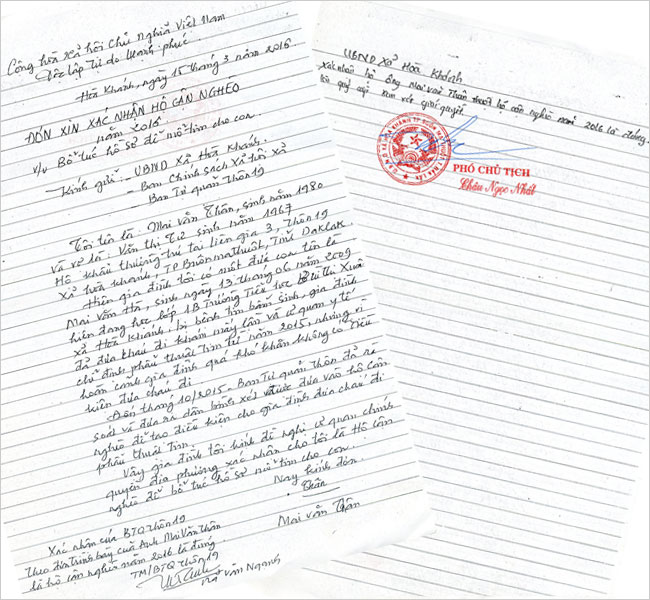 Cộng hòa xã hội chủ nghĩa Việt Nam
Độc lập Tự do Hạnh phúc.
Hòa Khánh, ngày 15 tháng 3 năm 2016.
ĐƠN XIN XÁC NHẬN HỘ CẬN NGHÈO
năm 2016
v/v Bổ túc hồ sơ để mổ tim cho con.
Kính gửi - UBND Xã Hòa Khánh.
- Ban Chính Sách Xã hội xã
Ban Tự quản Thôn 19
Tôi tên là: Mai Văn Thân, sinh năm 1980
Và vợ là: Văn Thị Tư sinh năm 1967
Hộ khẩu thường trú tại liên gia 3, Thôn 19
xã Hòa Khánh, TP Buôn ma thuột, Tỉnh Daklak
Hiện gia đình tôi có một đứa con tên là
Mai Văn Hà, sinh ngày 13 tháng 06 năm 2009
hiện đang học, lớp 1B Trường Tiểu học Bùi Thị Xuân
xã Hòa Khánh, bị bệnh tim bẩm sinh, gia đình
đã đưa cháu đi khám mấy lần và cơ quan y tế
chỉ định phẫu thuật Tim từ năm 2015, nhưng vì
hoàn cảnh gia đình quá khó khăn không có điều
kiện đưa cháu đi
Đến tháng 10/2015 - Ban Tự quản Thôn đã rà
soát và đưa ra dân bình xét và được đưa vào hộ Cận
nghèo để tạo điều kiện cho gia đình đưa cháu đi
phẫu thuật Tim.
Vậy gia đình tôi kính đề nghị cơ quan chính
quyền địa phương xác nhận cho tôi là Hộ cận
nghèo để bổ túc hồ sơ mổ tim cho con.
Nay kính đơn
Thân
Mai Văn Thân
Xác nhận của BTQ thôn 19
Theo đơn trình bày của Anh Mai Văn Thân
là hộ cận nghèo năm 2016 là đúng.
TM/BTQ thôn 19
Văn Ngành
UBND Xã Hòa Khánh
Xác nhận hộ ông Mai Văn Thân thuộc hộ cận nghèo năm 2016 là đúng.
quý cấp xem xét giải quyết.
PHÓ CHỦ TỊCH
Châu Ngọc Nhất